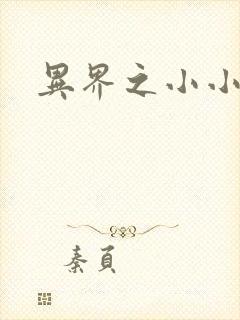 異界之小小
秦頁